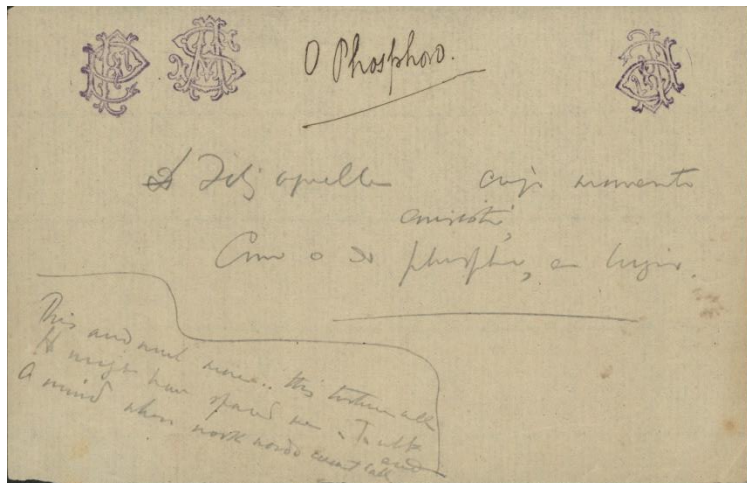 O Phosphoro.
Feliz aquelle cujo momento
consiste,
Como o do phosphoro, em
This and much more.. this torture all
It might have spared me. Truth and
A mind whose work words cannot call